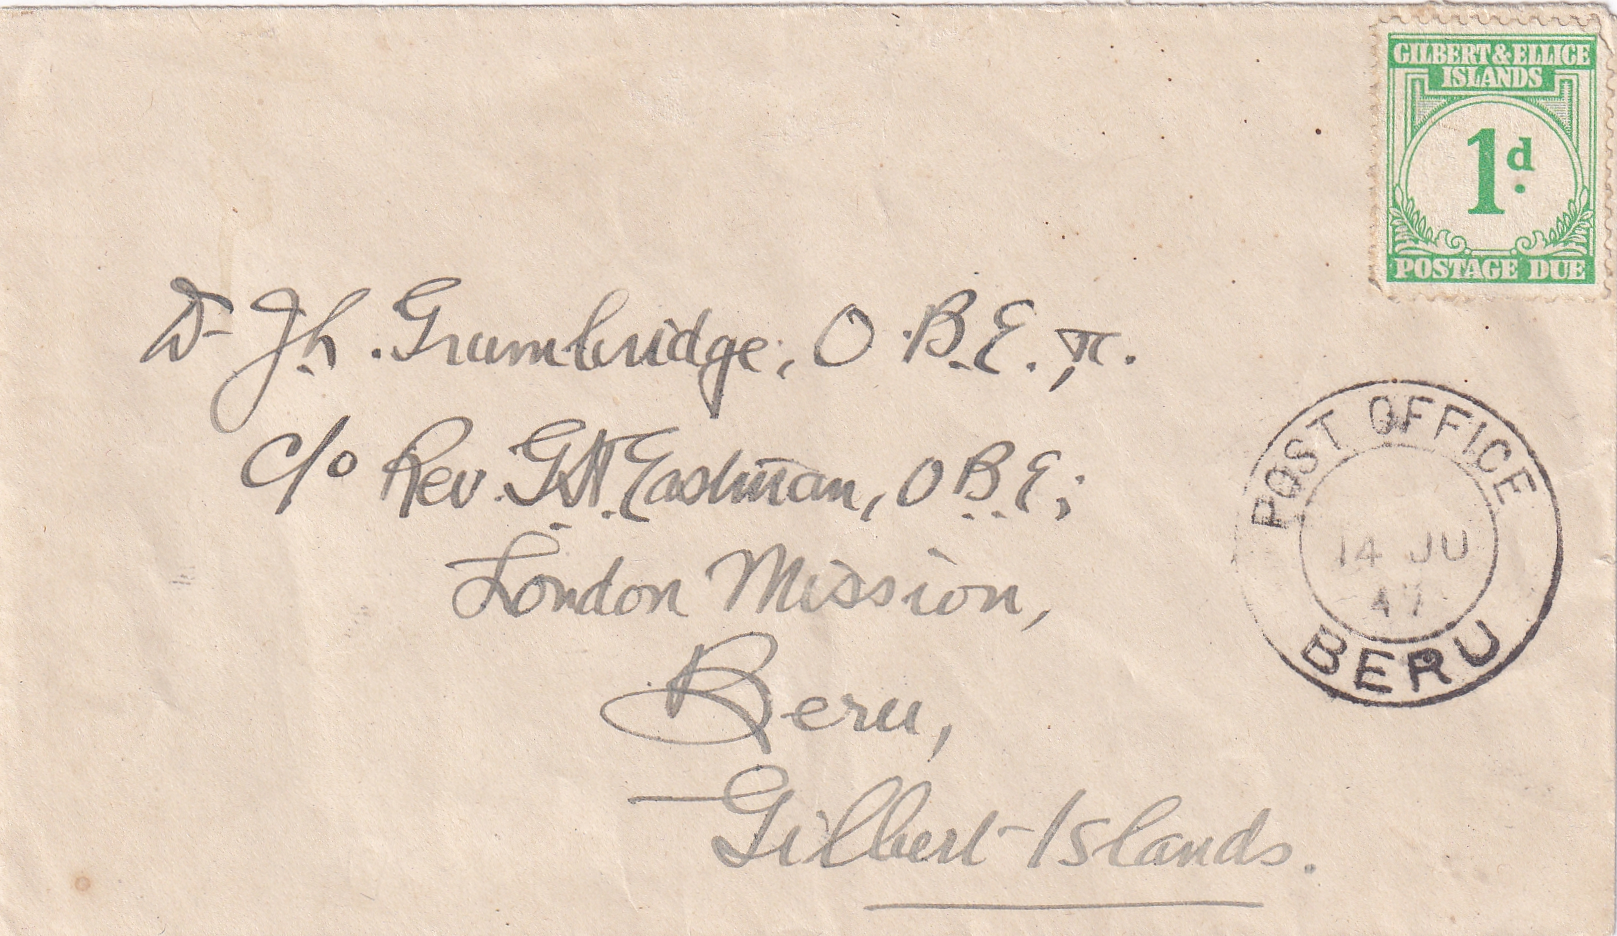 GILBERT & ELLICE
ISLANDS
1d.
POSTAGE DUE
Dr Jh. Grumbridge, O.B.E.
c/o Rev. G.H. Eastman, O.B.E;
London Mission,
Beru,
Gilbert Islands.
POST OFFICE
14 JU
47
BERU